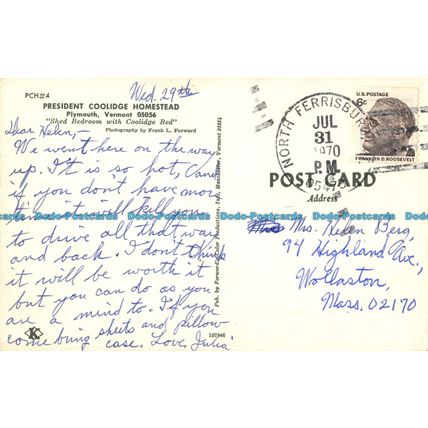 PCH#4
PRESIDENT COOLIDGE HOMESTEAD
Plymouth, Vermont 05056
"Shed Bedroom with Coolidge Bed"
Photography by Frank L. Forward
Wed. 29th
Dear Helen,
We went here on the way
up. It is so hot,
if you don't have
time it will kill you
to drive all that way
and back. I don't think
it will be worth it
but you can do as you
are a mind to. If you
come bring sheets and pillow
case. Love, Julia
K
107946
Pub. by Forward's Color Productions, Inc., Manchester, Vermont 05254
NORTH FERRISBURG
JUL
31
1970
P.M.
U.S. POSTAGE
6¢
FRANKLIN D. ROOSEVELT
POST CARD
Address
Mrs. Helen Berg,
94 Highland Ave.,
Wollaston,
Mass. 02170
Dodo-Postcards Dodo-Postcards Dodo-Postcards Dodo-Postcards Dodo-Postcards